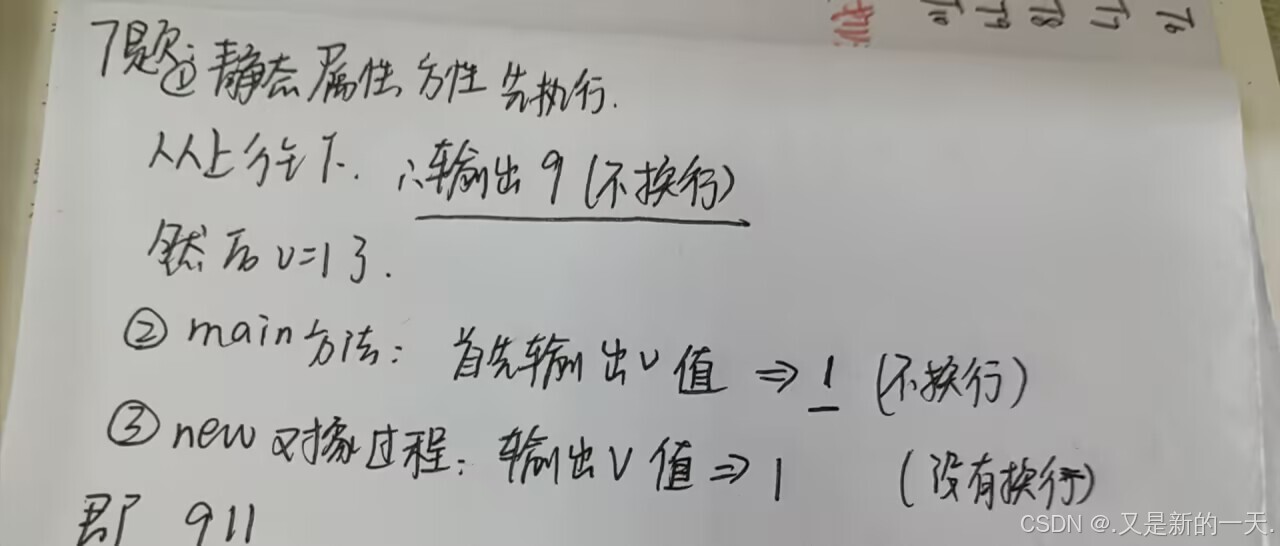 7题:①静态属性方性先执行.
从从上往下. ∴输出9(不换行)
然后v=1了.
②main方法: 首先输出v值⇒1(不换行)
③new对象过程:输出V值⇒1 (没有换行)
即 911
T10
T9
T8
T7
T6
CSDN @.又是新的一天.